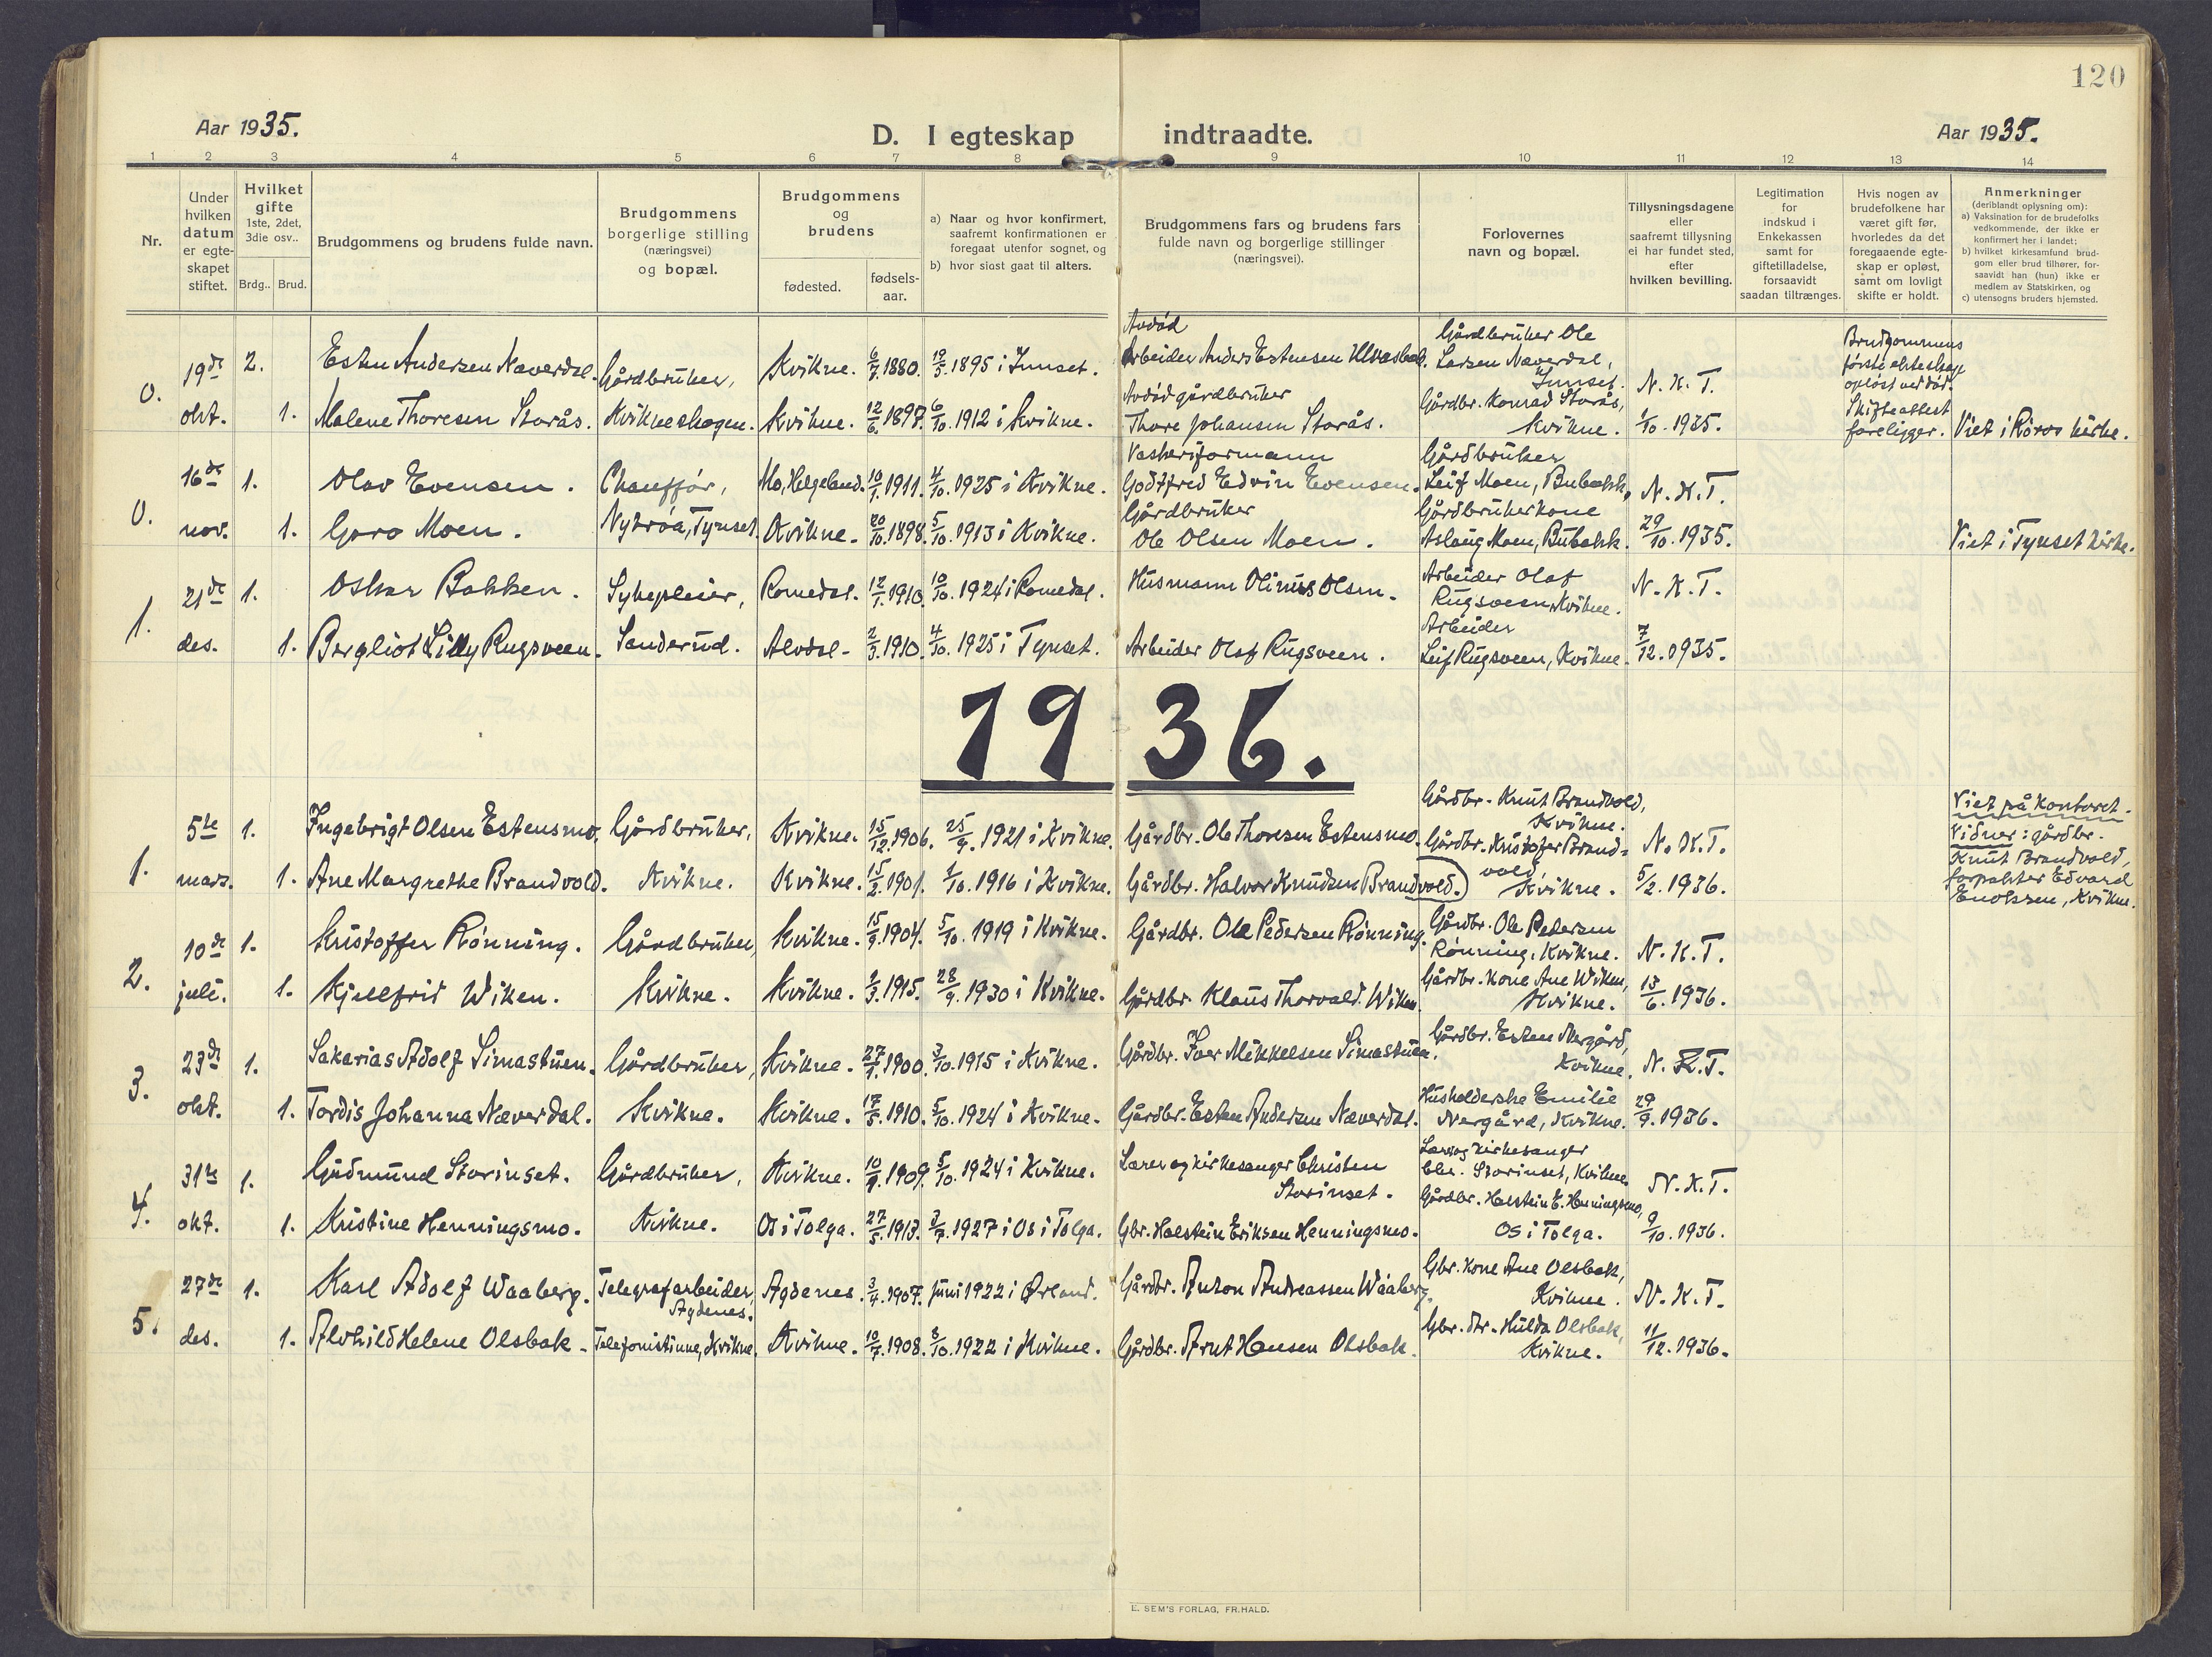 120
Aar 1935.
D. I egteskap indtraadte.
Aar 1935.
1 2 3 4 5 6 7 8 9 10 11 12 13 14
Nr.
Under
hvilken
datum
er egte-
skapet
stiftet.
Hvilket
gifte
1ste, 2det,
3die osv..
Brdg.. Brud.
Brudgommens og brudens fulde navn.
Brudgommens
borgerlige stilling
(næringsvei)
og bopæl.
Brudgommens
og
brudens
fødested.
fødsels-
aar.
a) Naar og hvor konfirmert,
saafremt konfirmationen er
foregaat utenfor sognet, og
b) hvor sidst gaat til alters.
Brudgommens fars og brudens fars
fulde navn og borgerlige stillinger
(næringsvei).
Forlovernes
navn og bopæl.
Tillysningsdagene
eller
saafremt tillysning
ei har fundet sted,
efter
hvilken bevilling.
Legitimation
for
indskud i
Enkekassen
samt for
giftetilladelse,
forsaavidt
saadan tiltrænges.
Hvis nogen av
brudefolkene har
været gift før,
hvorledes da det
foregaaende egte-
skap er opløst,
samt om lovligt
skifte er holdt.
Anmerkninger
(deriblandt oplysning om):
a) Vaksination for de brudefolks
vedkommende, der ikke er
konfirmert her i landet;
b) hvilket kirkesamfund brud-
gom eller brud tilhører, for-
saavidt han (hun) ikke er
medlem av Statskirken, og
c) utensogns bruders hjemsted.
0.
19de
okt.
2.
Esten Andersen Næverdal.
Gårdbruker,
Kvikne. 6/7. 1880. 19/5. 1895 i Innset.
Avdød
Arbeider Anders Estensen Ulvesbak.
Gårdbruker Ole
Larsen Næverdal,
Innset.
N. K. T.
Brudgommens
første ekteskap
opløst ved død.
Skifteattest
foreligger.
1.
Malene Thoresen Storås.
Kvikneskogen.
Kvikne. 12/6. 1897. 6/10. 1912 i Kvikne.
Avdød gårdbruker
Thore Johansen Storås.
Gårdbr. Konrad Storås,
Kvikne.
1/10. 1935.
Viet i Røros kirke.
0.
16de
nov.
1.
Olav Evensen.
Chauffør,
Mo, Helgeland. 10/1. 1911. 4/10. 1925 i Kvikne.
Vaskeriformann
Godtfred Edvin Evensen.
Gårdbruker
Leif Moen, Bubakk,
N. K. T.
1.
Goro Moen.
Nytrøa, Tynset.
Kvikne. 20/10. 1898. 5/10. 1913 i Kvikne.
Gårdbruker
Ole Olsen Moen.
Gårdbrukerkone
Aslaug Moen, Bubakk.
29/10. 1935.
Viet i Tynset kirke.
1.
21de
des.
1.
Oskar Bakken.
Sykepleier,
Romedal. 12/1. 1910. 10/10. 1924 i Romedal.
Husmann Olinus Olsen.
Arbeider Olaf
Rugsveen, Kvikne.
N. K. T.
1.
Bergliot Lilly Rugsveen.
Sanderud.
Alvdal. 2/3. 1910. 4/10. 1925 i Tynset.
Arbeider Olaf Rugsveen.
Arbeider
Leif Rugsveen, Kvikne.
7/12. 1935.
1936.
1.
5te
mars.
1.
Ingebrigt Olsen Estensmo.
Gårdbruker,
Kvikne. 15/12. 1906. 25/9. 1921 i Kvikne.
Gårdbr. Ole Thoresen Estensmo.
Gårdbr. Knut Brandvold,
Kvikne.
N. K. T.
Viet på kontoret.
Vidner: gårdbr.
Knut Brandvold,
forpakter Edvard
Enolssen, Kvikne.
1.
Ane Margrethe Brandvold.
Kvikne.
Kvikne. 15/2. 1901. 1/10. 1916 i Kvikne.
Gårdbr. Halvor Knudsen Brandvold.
Gårdbr. Kristofer Brand-
vold,
Kvikne.
5/2. 1936.
2.
10de
juli.
1.
Kristoffer Rønning.
Gårdbruker,
Kvikne. 15/9. 1904. 5/10. 1919 i Kvikne.
Gårdbr. Ole Pedersen Rønning.
Gårdbr. Ole Pedersen
Rønning, Kvikne.
N. K. T.
1.
Kjellfrid Wiken.
Kvikne.
Kvikne. 2/3. 1915. 28/9. 1930 i Kvikne.
Gårdbr. Klaus Thorvald. Wiken.
Gårdbr. kone Ane Wiken,
Kvikne.
13/6. 1936.
3.
23de
okt.
1.
Sakarias Adolf Simastuen.
Gårdbruker,
Kvikne. 27/1. 1900. 3/10. 1915 i Kvikne.
Gårdbr. Iver Mikkelsen Simastuen.
Gårdbr. Esten Nergård,
Kvikne.
N. K. T.
1.
Tordis Johanna Næverdal.
Kvikne.
Kvikne. 17/5. 1910. 5/10. 1924 i Kvikne.
Gårdbr. Esten Andersen Næverdal.
Husholderske Emilie
Nergård, Kvikne.
29/9. 1936.
4.
31te
okt.
1.
Gudmund Storinset.
Gårdbruker,
Kvikne. 10/9. 1909. 5/10. 1924 i Kvikne.
Lærer og kirkesanger Christen
Storinset.
Lærer og kirkesanger
Chr. Storinset, Kvikne.
N. K. T.
1.
Kristine Henningsmo.
Kvikne.
Os i Tolga. 27/5. 1913. 3/7. 1927 i Os i Tolga.
Gbr. Halstein Eriksen Henningsmo.
Gårdbr. Halstein E. Henningsmo,
Os i Tolga.
9/10. 1936.
5.
27de
des.
1.
Karl Adolf Waaberg.
Telegrafarbeider,
Agdenes.
Agdenes. 3/4. 1907. juni 1922 i Ørland.
Gårdbr. Anton Andreassen Waaberg.
Gbr. kone Ane Olsbak,
Kvikne.
N. K. T.
1.
Alvhild Helene Olsbak.
Telefonistinne, Kvikne.
Kvikne. 10/7. 1908. 8/10. 1922 i Kvikne.
Gårdbr. Arnt Hansen Olsbak.
Gbr. dtr. Hulda Olsbak,
Kvikne.
11/12. 1936.
E. SEM'S FORLAG, FR.HALD.